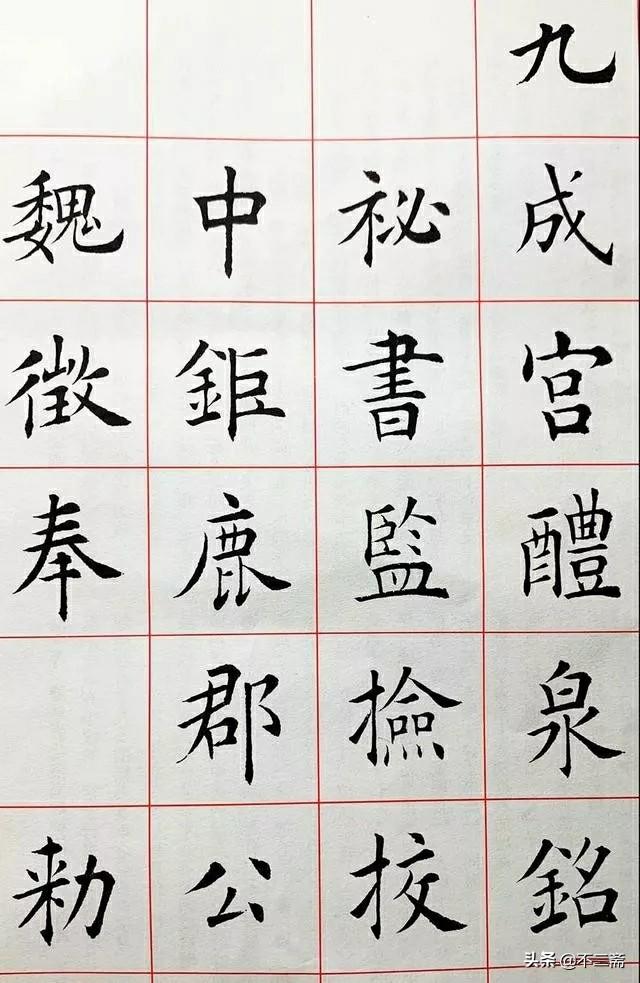 九成宫醴泉銘
秘書監撿挍
中鉅鹿郡公
魏徵奉勑
头条@不二斋